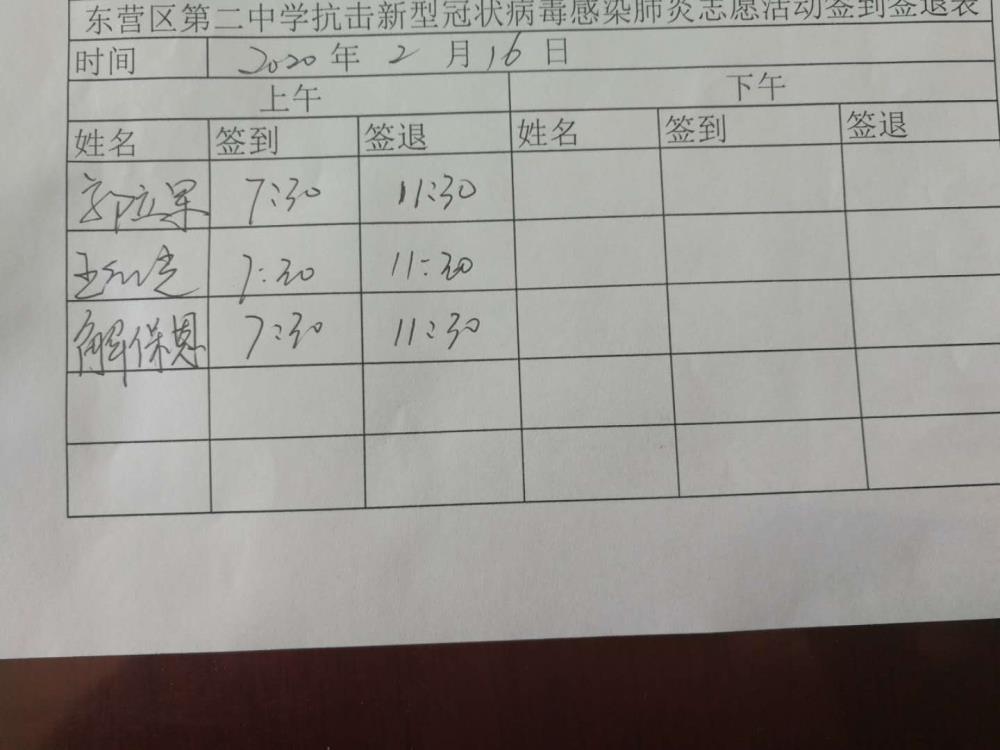 东营区第二中学抗击新型冠状病毒感染肺炎志愿活动签到签退表
时间 2020年 2 月 16 日
上午 下午
姓名 签到 签退 姓名 签到 签退
郭立军 7:30 11:30
王 7:30 11:30
解保恩 7:30 11:30